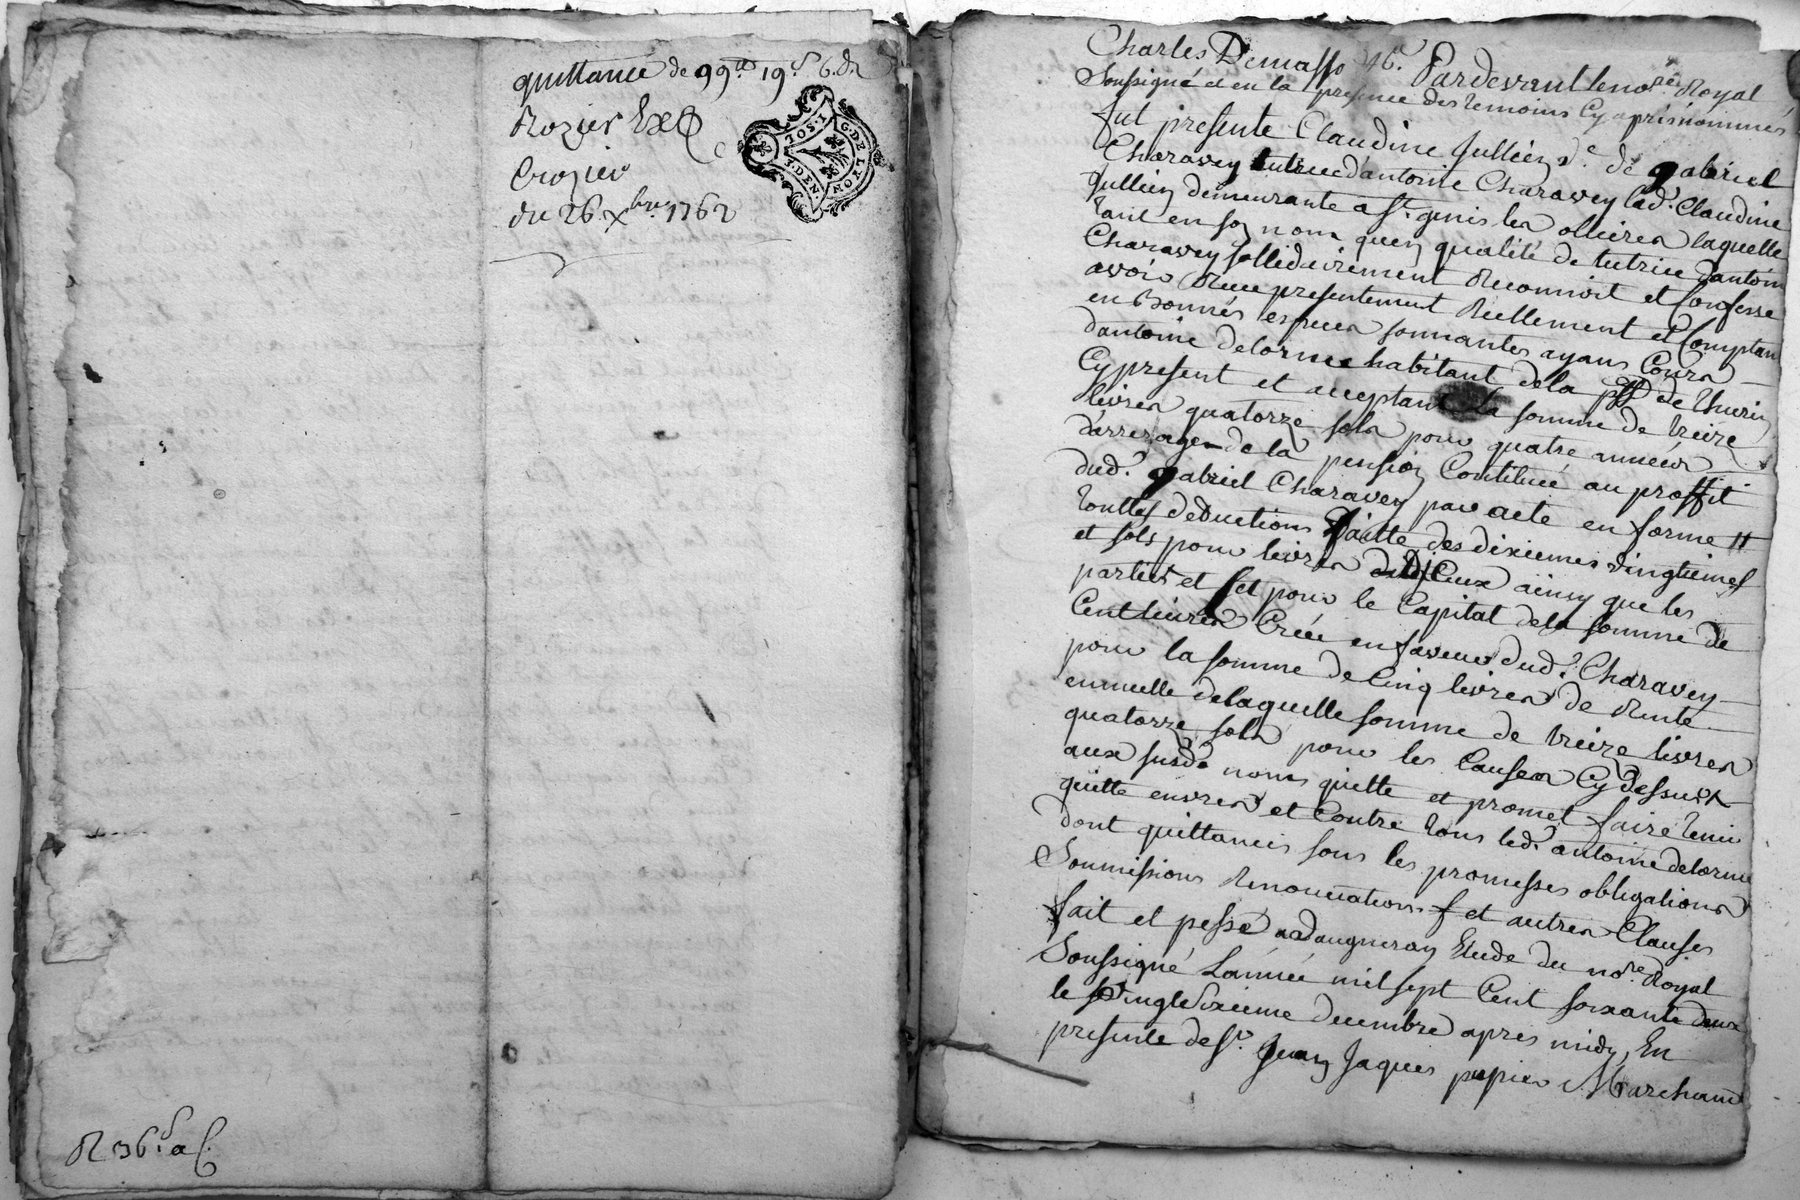 quittance de 99ᵗᵗ 19ˢ 6.dʳ
Rozier Exp
Crozier
du 26 xbre 1762
G. DE LYON
2 SOLS
R 36ˢ a
Charles Demasso 46. Pardevant le nore Royal
Soussigné et en la presence des temoins Cy apres nommés
fut presente Claudine Jullien ve de gabriel
Charavey tutrice d'antoine Charavey lad. Claudine
Jullien demeurante a st. genis les ollieres laquelle
tant en son nom quen qualité de tutrice dantoine
Charavey sollidairement Reconnoit et Confesse
avoir Receu presentement Reellement et Comptant
en bonnes especes sonnantes ayans Cours
dantoine delorme habitant de la psse de thurin
Cy present et acceptant La somme de treize
livres quatorze sols pour quatre années
darrerages de la pension Constituée au proffit
dud. gabriel Charavey par acte en forme
touttes deductions faitte des dixiemes vingtiemes
et sols pour livres diceux ainsy que les
parties et pour le Capital de la somme de
Cent livres Créée en faveur dud. Charavey
pour la somme de Cinq livres de Rente
annuelle de laquelle somme de treize livres
quatorze sols pour les Causes Cy dessus
aux susd. noms quitte et promet faire tenir
quitte envers et Contre tous led. antoine delorme
dont quittances sous les promesses obligations
Soumissions Renonciations et autres Clauses
fait et passé a vaugneray Etude du nore Royal
Soussigné Lannée mil sept Cent soixante deux
le vingt Sixieme decembre apres midy, En
presence de sr. Jean Jaques papier Marchand